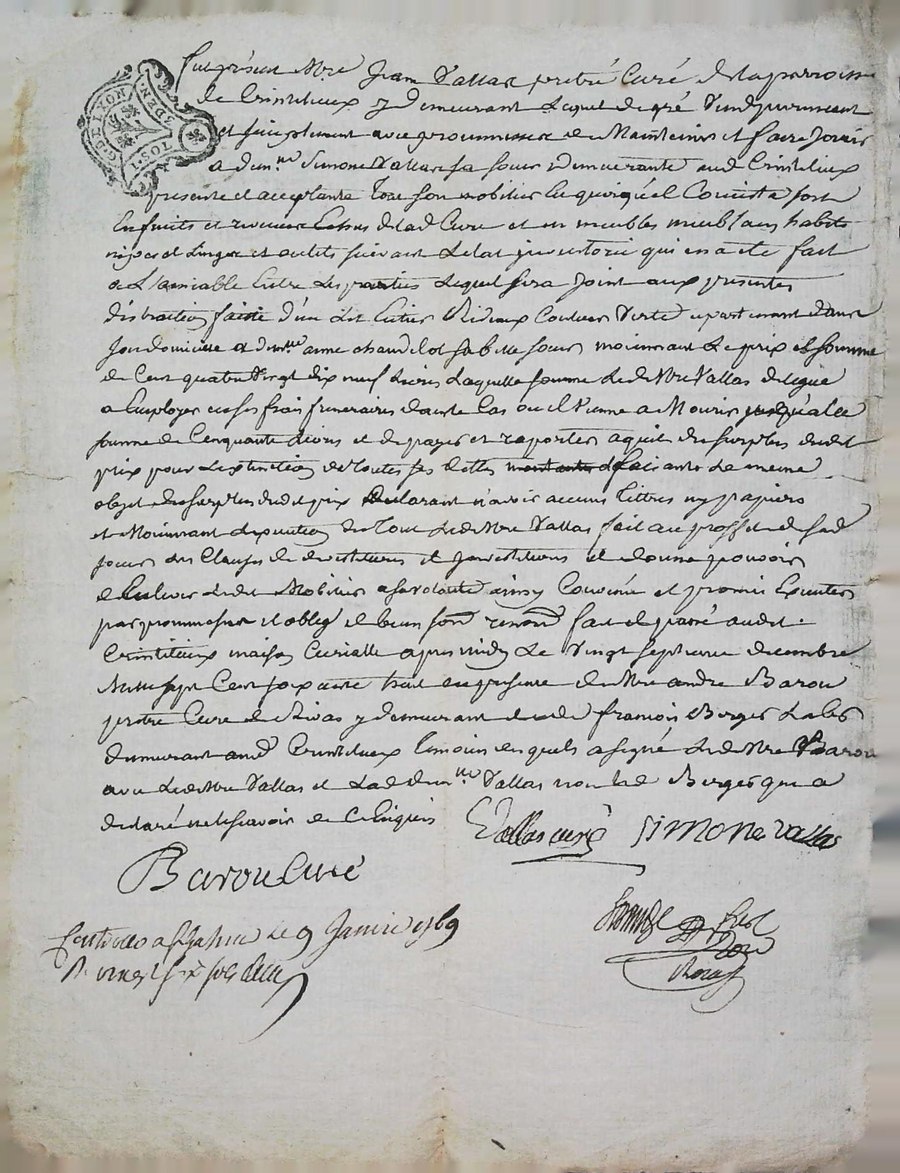 G. DE LYON
3 DEN.
TOSI
Fut présent Mre Jean Vallas pretre Curé de la parroisse
de Crintilieux y demeurant Lequel de gré Vend purement
et simplement avec promesse de Maintenir et faire Jouir
a dem.lle Simone Vallas sa soeur demeurante aud Crintilieux
presente et acceptante Tout son mobilier En quoi qu'el Consiste soit
En fruits et revenus de lad Cure et en meubles meublans habits
nipes et Linges et outils suivant Letat inventorié qui en a ete fait
a L'amiable Entre Les parties Lequel sera Joint aux presentes
distraction faite d'un Lit Entier Rideaux Couleur Verte apartenant dans
son domicille et dem.lle anne sa belle soeur moienant Le prix et somme
de Cent quatre Vingt dix neuf Livres Laquelle somme Led Mre Vallas delegue
a Employer en ses frais funeraires dans le Cas ou il Vienne a Mourir jusqu'a la
somme de Cinquante Livres et de payer et raporter aquit du surplus dudit
prix pour Lextinction de Toutes ses dettes faisant Le meme
objet du surplus dudit prix declarant n'avoir aucuns titres ny papiers
et Moienant Lexecution du Tout Led Mre Vallas fait au proffit de sad
soeur des Clauses de devestitures et investitures et donne pouvoir
d'Enlever Ledit Mobilier a sa volonté ainsy Convenu et promis Executer
par promesses et oblig et biens soum renon fait et passé audit
Crintilieux maison Curialle apres midy Le Vingt Septieme decembre
Mille sept Cent soixante huit en presence de Mre andre Barou
pretre Curé de Rivas y demeurant et de françois Berger
demeurant aud Crintilieux temoins Lesquels a signé Led Mre Barou
avec Led Mre Vallas et Lad dem.lle Vallas non Led Berger qui a
declaré ne le sçavoir de Ce Enquis
Vallas curé Simone Vallas
Barou Curé
Controllé a Le 9 Janvier 1769
R. vingt six sols